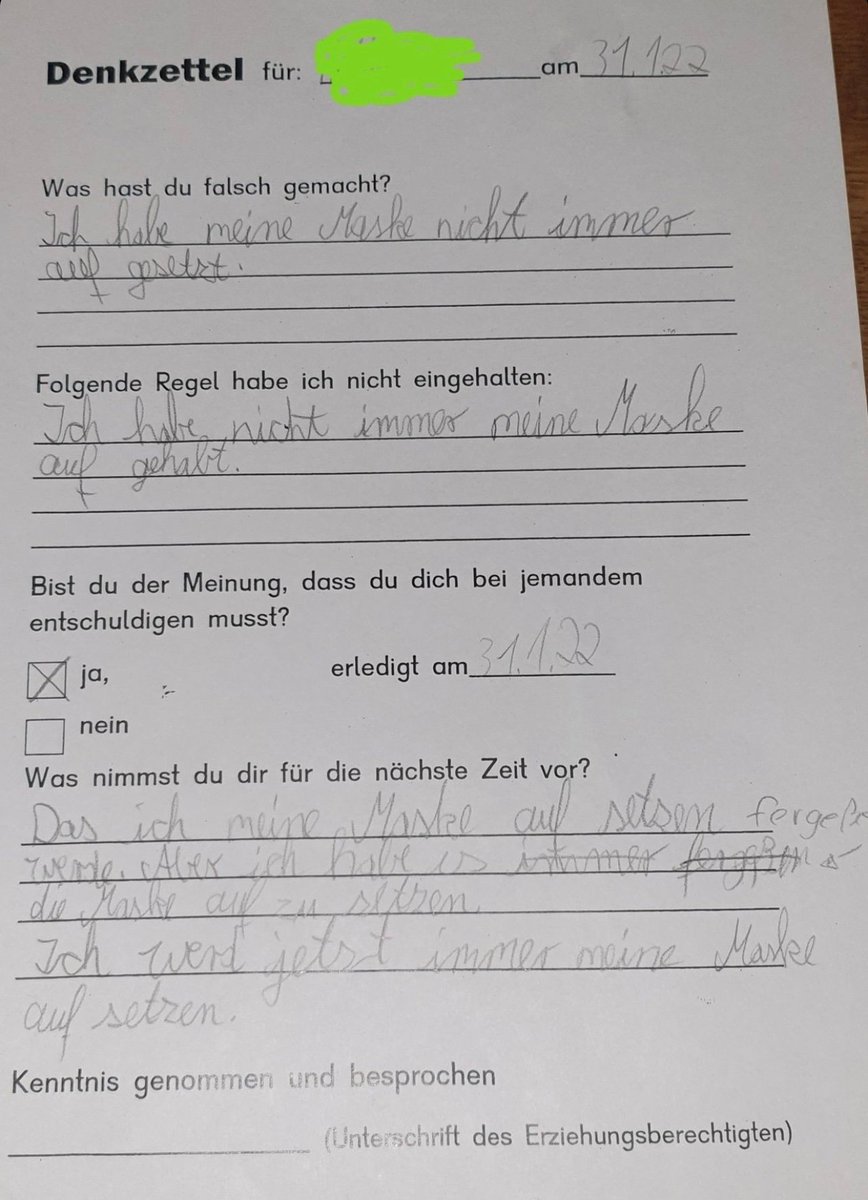 Denkzettel für: am 31.1.22
Was hast du falsch gemacht?
Ich habe meine Maske nicht immer
auf gesetzt.
Folgende Regel habe ich nicht eingehalten:
Ich habe nicht immer meine Maske
auf gehabt.
Bist du der Meinung, dass du dich bei jemandem
entschuldigen musst?
ja, erledigt am 31.1.22
nein
Was nimmst du dir für die nächste Zeit vor?
Das ich meine Maske auf setsen
werde. Aber ich habe es immer
die Maske auf zu setzen
Ich werd jetst immer meine Maske
auf setzen.
Kenntnis genommen und besprochen
(Unterschrift des Erziehungsberechtigten)